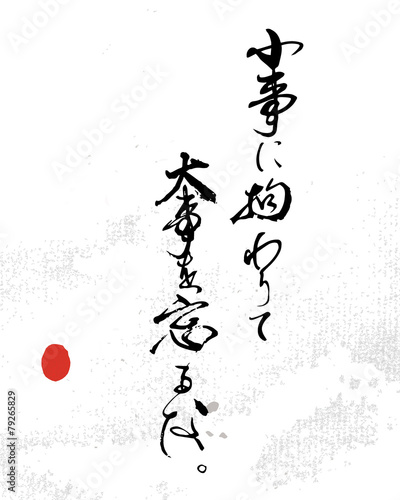 小事に拘わりて
大事を忘るな。
Adobe Stock | #79265829